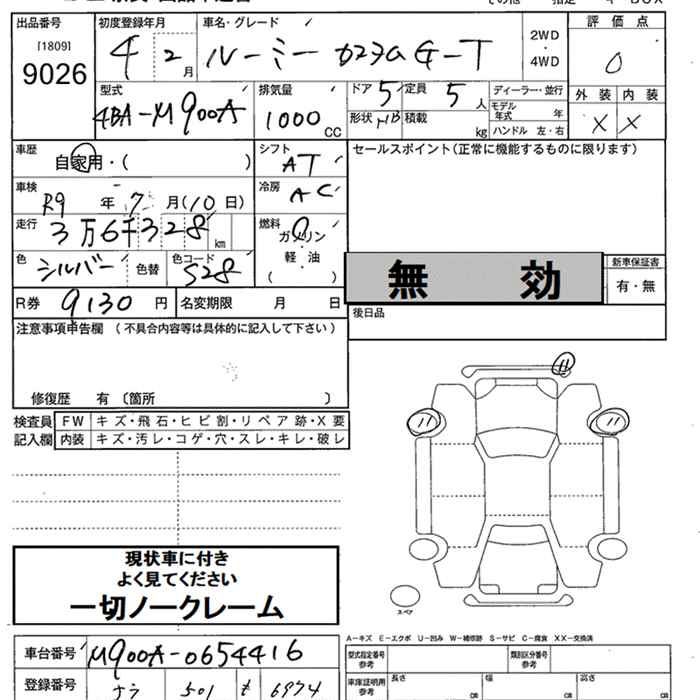 出品番号 初度登録年月 車名・グレード 評価点
[1809]
9026
4 2月 ルーミー カスタムG-T 2WD・4WD 0
型式 排気量 ドア 定員 ディーラー・並行 外装 内装
4BA-M900A 1000CC 5 5人 モデル年式 年 X X
形状 HB 積載 kg ハンドル 左・右
車歴 シフト セールスポイント(正常に機能するものに限ります)
自家用・( ) AT
車検 冷房
R9年 7月(10日) AC
走行 燃料
3万6千328km ガソリン
軽・油
( )
色 シルバー 色替 色コード S28
無効 新車保証書
有・無
R券 9130円 名変期限 月 日
後日品
注意事項申告欄 (不具合内容等は具体的に記入して下さい)
修復歴 有 〔箇所 〕
検査員 FW キズ・飛石・ヒビ割・リペア跡・X要
記入欄 内装 キズ・汚レ・コゲ・穴・スレ・キレ・破レ
現状車に付き
よく見てください
一切ノークレーム
スペア
A-キズ E-エクボ U-凹み W-補修跡 S-サビ C-腐食 XX-交換済
車台番号 M900A-0654416
型式指定番号 参考 類別区分番号 参考
登録番号 501 6974
車庫証明用 参考 長さ cm 幅 cm 高さ cm